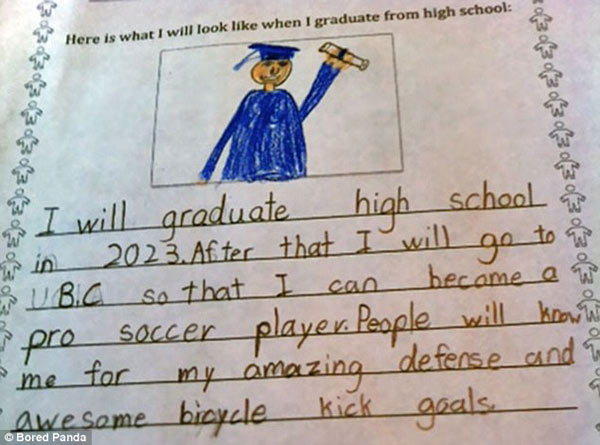 Here is what I will look like when I graduate from high school:
I will graduate high school
in 2023. After that I will go to
UB.C so that I can become a
pro soccer player. People will know
me for my amazing defense and
awesome bicycle kick goals.
© Bored Panda